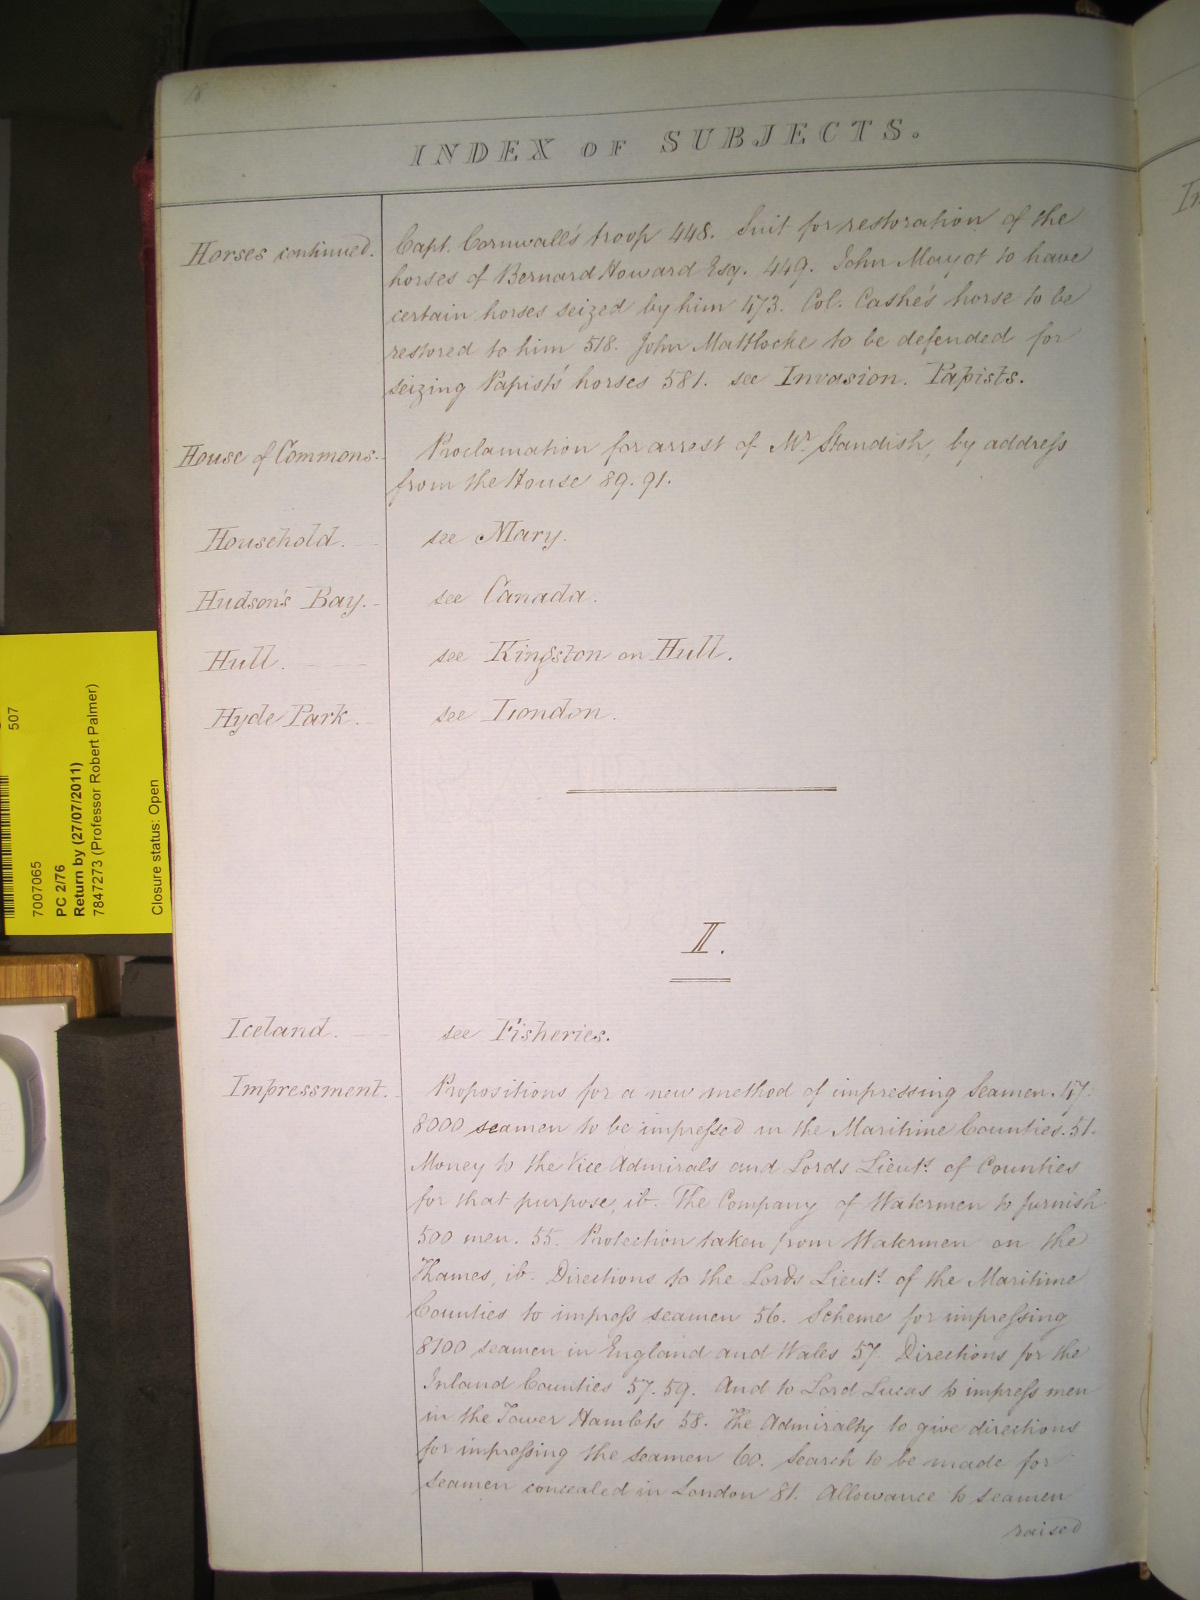 INDEX OF SUBJECTS.
Horses continued.
Capt. Cornwall's troop 448. Suit for restoration of the
horses of Bernard Howard Esq. 449. John Mayot to have
certain horses seized by him 473. Col. Cashe's horse to be
restored to him 518. John Mattlocke to be defended for
seizing Papists' horses 581. see Invasion. Papists.
House of Commons.
Proclamation for arrest of Mr. Standish, by address
from the House 89. 91.
Household.
see Mary.
Hudson's Bay.
see Canada.
Hull.
see Kingston on Hull.
Hyde Park.
see London.
I.
Iceland.
see Fisheries.
Impressment.
Propositions for a new method of impressing Seamen. 47.
8000 seamen to be impressed in the Maritime Counties. 51.
Money to the Vice Admirals and Lords Lieuts. of Counties
for that purpose, ib. The Company of Watermen to furnish
500 men. 55. Protection taken from Watermen on the
Thames, ib. Directions to the Lords Lieuts. of the Maritime
Counties to impress seamen 56. Scheme for impressing
8100 seamen in England and Wales 57. Directions for the
Inland Counties 57. 59. And to Lord Lucas to impress men
in the Tower Hamlets 58. The Admiralty to give directions
for impressing the seamen 60. Search to be made for
seamen concealed in London 81. Allowance to seamen
raised
507
7007065
PC 2/76
Return by (27/07/2011)
7847273 (Professor Robert Palmer)
Closure status: Open